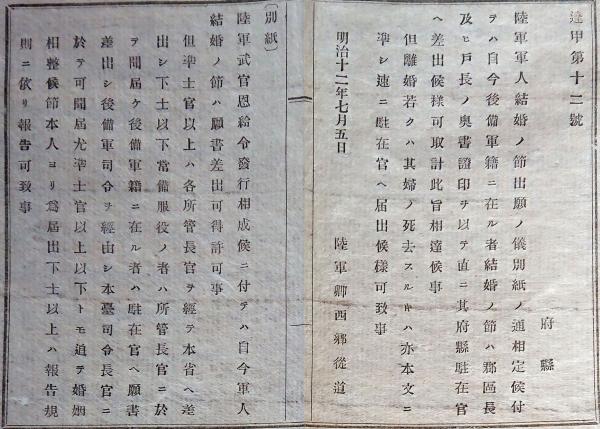 達甲第十二號
府縣
陸軍軍人結婚ノ節出願ノ儀別紙ノ通相定候付
テハ自今後備軍籍ニ在ル者結婚ノ節ハ郡區長
及ヒ戶長ノ奧書證印ヲ以テ直ニ其府縣駐在官
ヘ差出候樣可取計此旨相達候事
但離婚若クハ其婦ノ死去スル時ハ亦本文ニ
準シ速ニ駐在官ヘ届出候樣可致事
明治十二年七月五日
陸軍卿西鄕從道
〔別紙〕
陸軍武官恩給令發行相成候ニ付テハ自今軍人
結婚ノ節ハ願書差出可得許可事
但準士官以上ハ各所管長官ヲ經テ本省ヘ差
出シ下士以下常備服役ノ者ハ所管長官ニ於
テ聞届ケ後備軍籍ニ在ル者ハ駐在官ヘ願書
差出シ後備軍司令ヲ經由シ本臺司令長官ニ
於テ可聞届尤準士官以上以下トモ追テ婚姻
相整候節本人ヨリ爲届出下士以上ハ報告規
則ニ依リ報告可致事